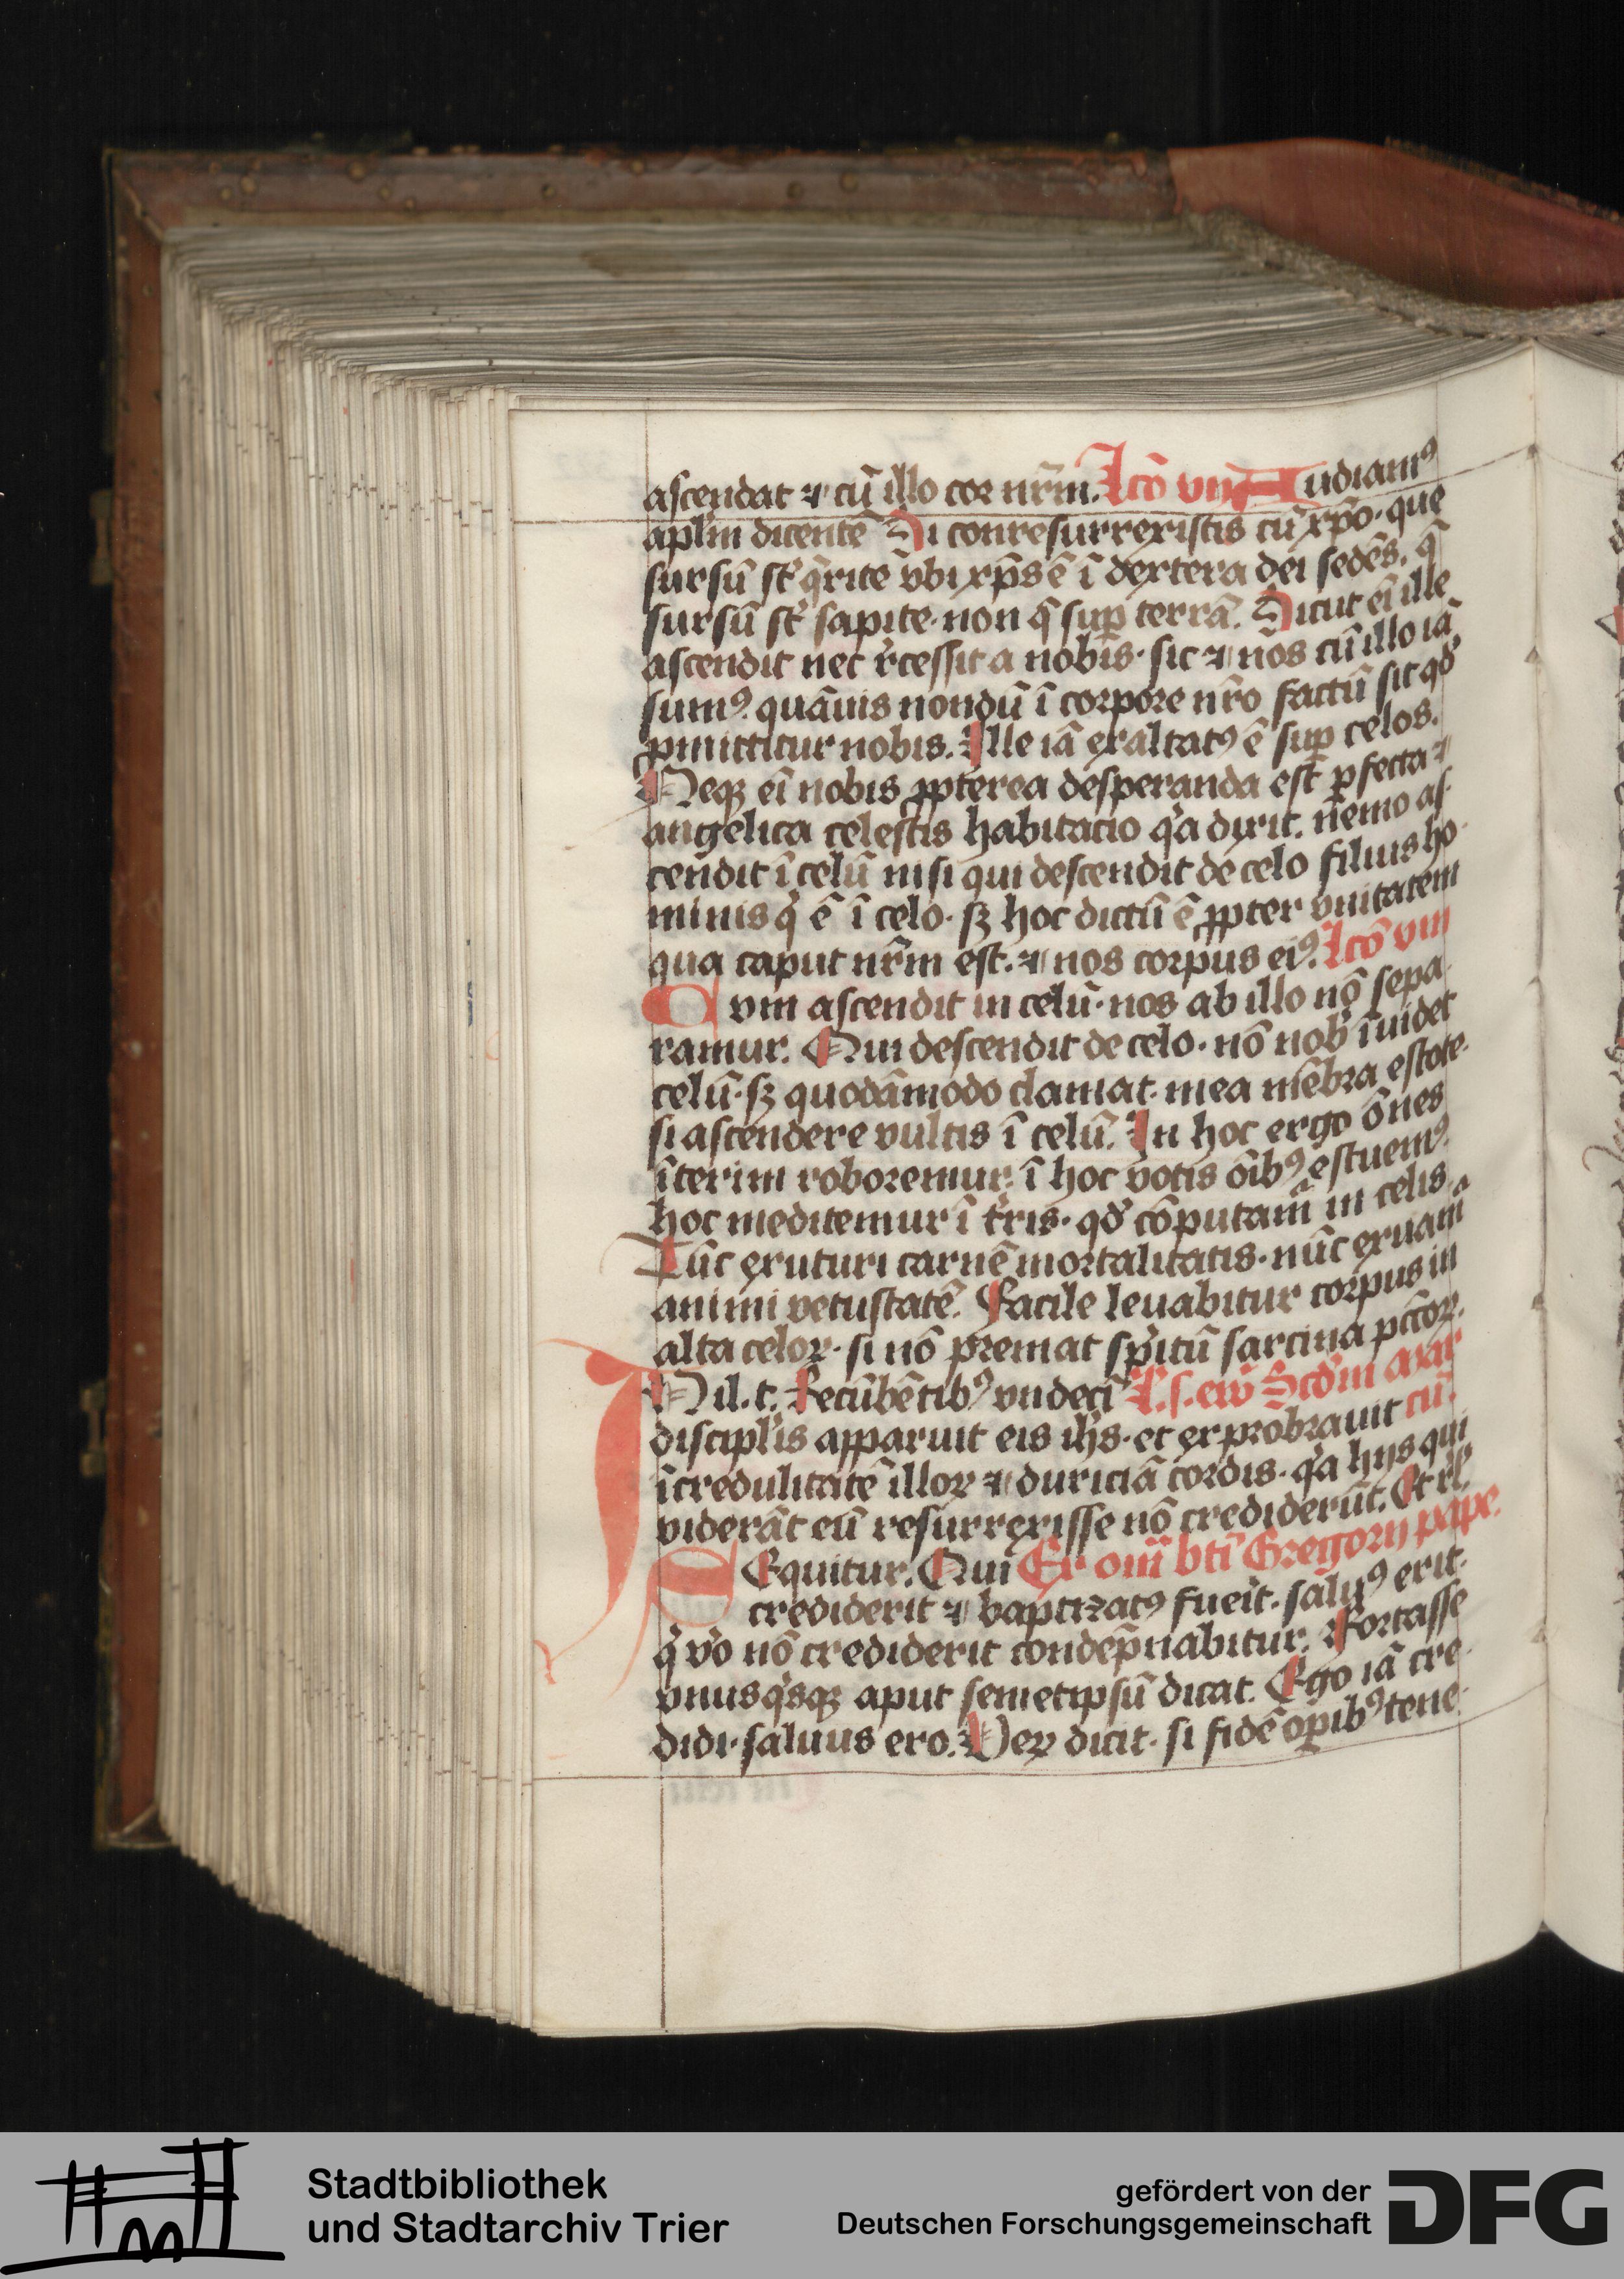 ascendat ⁊ cū illo cor nr̄m. Lcō vıj Audiamꝰ
apl̄m dicentē Si conresurrexistis cū xp̄o · que
sursū st̄ q̄rite vbi xp̄s ē ī dextera dei sedēs. q̄
sursū st̄ sapite · non q̄ suꝑ terrā. Sicut eī ille
ascendit nec r̄cessit a nobis · sic ⁊ nos cū illo iā
sumꝰ. quāuis nondū ī corpore nr̄o factū sit qd̄
ꝓmittitur nobis. Ille iā exaltatꝰ ē suꝑ celos.
Neqꝫ eī nobis ꝓpterea desperanda est ꝑfecta ⁊
angelica celestis habitacio qͥa dixit. nemo as-
cendit ī celū nisi qui descendit de celo filius ho-
minis qͥ ē ī celo · sꝫ hoc dictū ē ꝓpter vnitatem
qua caput nr̄m est. ⁊ nos corpus eiꝰ. Lcō vııı
Cvm ascendit in celū · nos ab illo nō sepa-
ramur. Qui descendit de celo · nō nob̄ īuidet
celū · sꝫ quodāmodo clamat · mea mēbra estote
si ascendere vultis ī celū. In hoc ergo ōnes
īterim roboremur. ī hoc votis oībꝰ estuemꝰ.
hoc meditemur ī tr̄is · qd̄ cōputamͣ in celis
Tūc exuturi carnē mortalitatis · nūc exuamͣ
animi vetustatē. Facile leuabitur corpus in
alta celoꝝ · si nō premat spͥitū sarcina pctōꝝ.
IN il. t. Recūbētibꝰ vndecī L. s. ew̄ Scd̄m mar
discipl̄is apparuit eis ih̄s · et exprobrauit cū.
īcredulitatē illoꝝ ⁊ duriciā cordis · qͥa hijs qui
viderāt eū resurrexisse nō crediderūt. Et rl̄.
SEquitur. Qui Ex om̄ bt̄i Gregorij pape.
crediderit ⁊ baptizatꝰ fuerit · saluꝰ erit ·
qͥ v̄o nō crediderit condēpnabitur. Fortasse
vnusqͥsqꝫ aput semetipsū dicat. Ego iā cre-
didi · saluus ero. Veꝝ dicit · si fidē oꝑibꝰ tene-
Stadtbibliothek
und Stadtarchiv Trier
gefördert von der
Deutschen Forschungsgemeinschaft
DFG